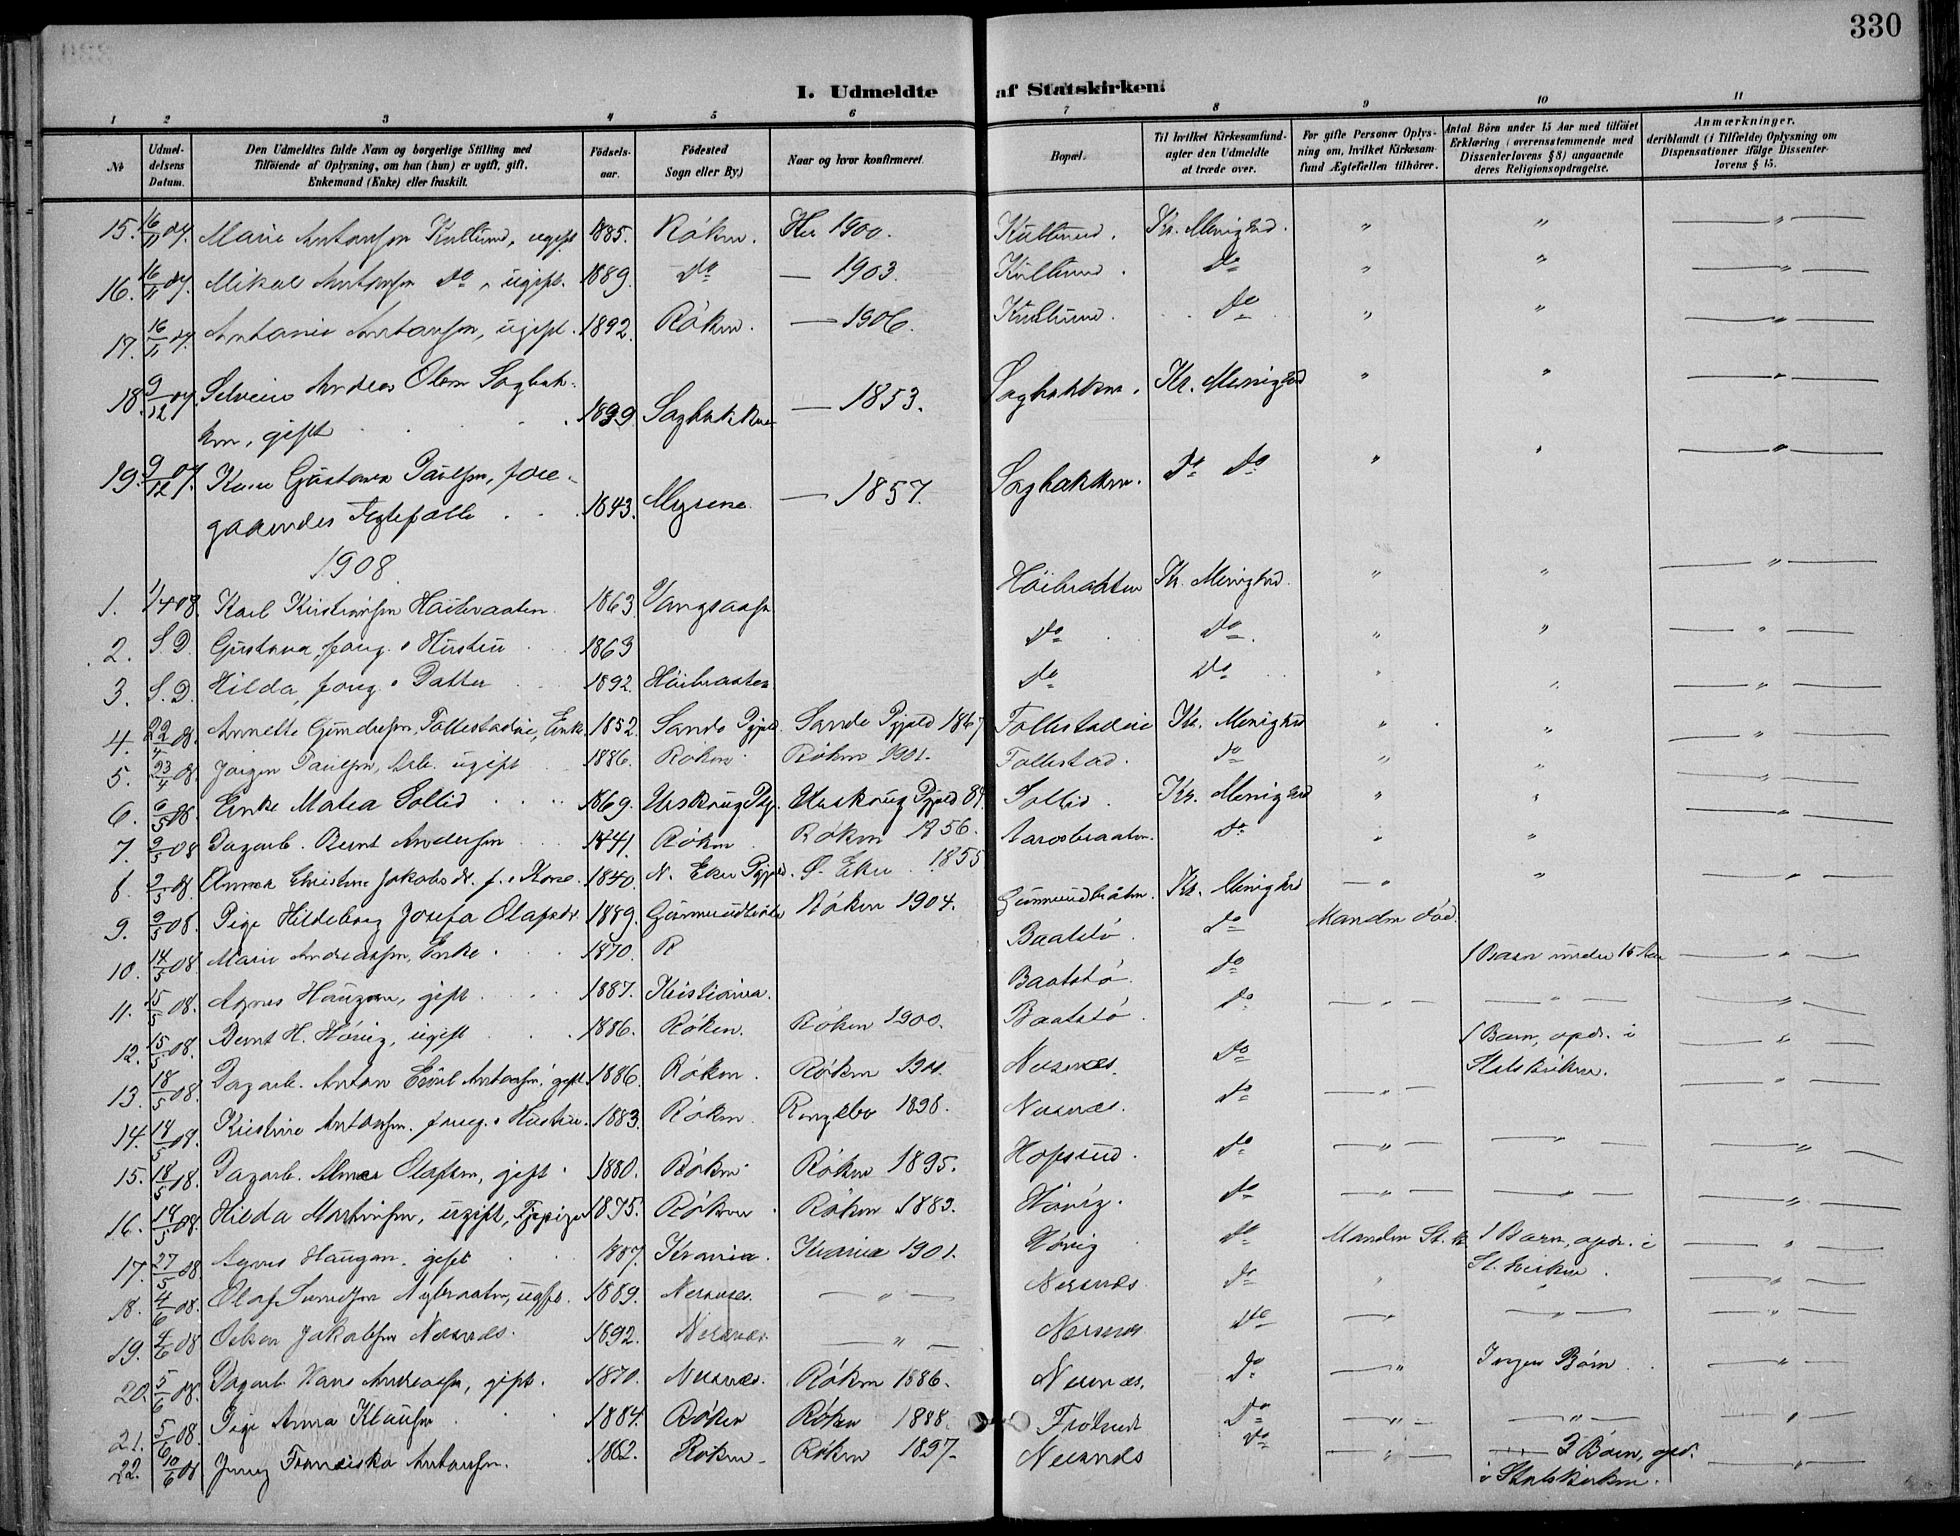 330
I. Udmeldte af Statskirken.
1 2 3 4 5 6 7 8 9 10 11
No
Udmeldelsens Datum.
Den Udmeldtes fulde Navn og borgerlige Stilling med
Tilföiende af Oplysning, om han (hun) er ugift, gift,
Enkemand (Enke) eller fraskilt.
Födselsaar.
Födested
Sogn eller By.)
Naar og hvor konfirmeret.
Bopæl.
Til hvilket Kirkesamfund
agter den Udmeldte
at træde over.
For gifte Personer Oplysning om, hvilket Kirkesamfund Ægtefællen tilhörer.
Antal Börn under 15 Aar med tilföiet
Erklæring (overensstemmende med
Dissenterlovens § 8) angaaende
deres Religionsopdragelse.
Anmærkninger,
deriblandt (i Tilfælde) Oplysning om
Dispensationer ifölge Dissenterlovens § 15.
15. 16/11 07. Marie Antonsen Kutlund, ugift 1885. Røken. Her 1900. Kutlund. Kr. Menighed. " " — " —
16. 16/11 07. Mikal Antonsen do, ugift. 1889. do — 1903. Kutlund. do " " — " —
17. 16/11 07. Antonie Antonsen, ugift. 1892. Røken. — 1906. Kutlund. do " " — " —
18. 9/12 07. Andreas Olsen Sagbakken, gift 1839 Sagbakken — 1853. Sagbakken. Kr. Menighed " " — " —
19. 9/12 07. Gustava Paulsen, foregaaendes Ægtefælle 1843. Mysene — 1857. Sagbakken. do do " " — " —
1908
1. 1/4 08. Karl Kristiansen Høibraaten 1863 Høibraaten Kr. Menighed. " " — " —
2. S.D. Gustava, foreg.s Hustru 1863 do do " " — " —
3. S.D. Hilda, foreg.s Datter 1892. Høibraaten do do " " — " —
4. 22/4 08. Annette Follestadeie, Enke 1852. Sande Pgjeld. Sande Pgjeld 1867 Follestadeie Kr. Menighed " " — " —
5. 23/4 08. Jørgen Paulsen, ugift 1886. Røken Røken 1901. Follestad. do " " — " —
6. 6/5 08. Enke Matea Sollid 1869. Sollid. Kr. Menighed " " — " —
7. 9/5 08 Dagarb. Bernt Andersen 1841. Røken Røken 1856. Aarosbraaten. do " "
8. 9/5 08. Anna Christine Jakobsdr. f. s Kone. 1840. N. Eker Pgjeld. Ø. Eker 1855 Kr. Menighed — " " — " —
9. 9/5 08. Pige Hildeborg Josefa Olafsdr. 1889. Røken 1904. Baatstø. do Manden død.
10. 14/5 08 Marie Andreassen, Enke 1870. R Baatstø. do 1 Barn under 15 Aar — " —
11. 15/5 08. Agnes Haugan, gift 1887. Kristiania. Baatstø. do — " — — " — — " —
12. 15/5 08. Bernt H. Høvig, ugift 1886. Røken. Røken 1900. Nersnæs. do 1 Barn, opdr. i Statskirken. — " —
13. 18/5 08. Dagarb. Anton Emil Antonsen, gift 1886. Røken. Røken 1901. Nersnæs. do — " — — " —
14. 18/5 08. Kristine Antonsen. foreg.s Hustru. 1883. Røken. Ringebo 1898. Hofsrud. do — " — — " — — " —
15. 18/5 08. Dagarb. Olafsen, gift 1880. Røken Røken 1895. Høvig. do — " — — " — — " —
16. 18/5 08. Hilda Martinsen, ugift, 1875. Røken. Røken 1883. Høvig do Manden St. k. 1 Barn, opdr. i St. kirken. — " —
17. 27/5 08. Agnes Haugan. gift 1887. Krania. Krania 1901. Nersnæs. do " " — " —
18. 4/6 08. Olaf Nybraaten, ugift. 1889. Nersnæs. — " — Nersnæs do — " — " — " —
19. 4/6 08 Oskar Jakobsen Nersnæs. 1892. Nersnæs. — " — Nersnæs. do — " Ingen Børn — " —
20. 5/6 08. Dagarb. Hans Andreassen, gift. 1870. Nersnæs. Røken 1886.
21. 5/6 08. Pige Anna Klausen 1884. Røken Røken 1898. do — " — — " — — " —
22. 10/6 08 Franciska Antonsen. 1882. Røken. Røken 1897. Nersnæs do — " — 3 Børn, opdr. i Statskirken. — " —